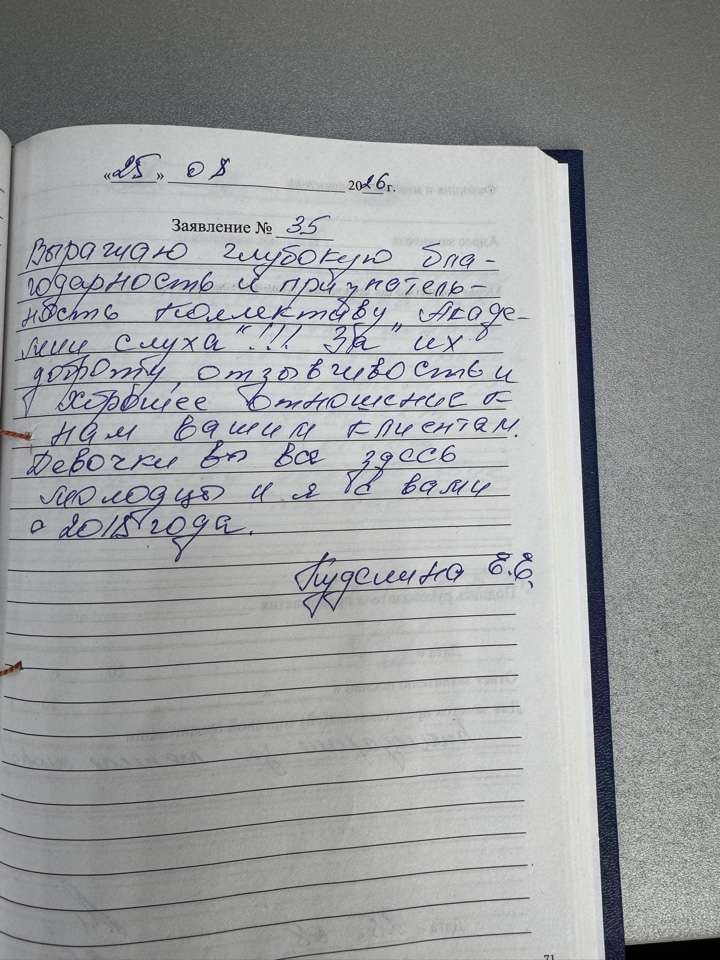 «25» 08 2026 г.
Заявление № 35
Выражаю глубокую бла-
годарность и признатель-
ность коллективу „Акаде-
мии слуха"!!! За их
доброту, отзывчивость и
хорошее отношение к
нам вашим клиентам.
Девочки вы все здесь
молодцы и я с вами
с 2018 года.
Е.Е.
71